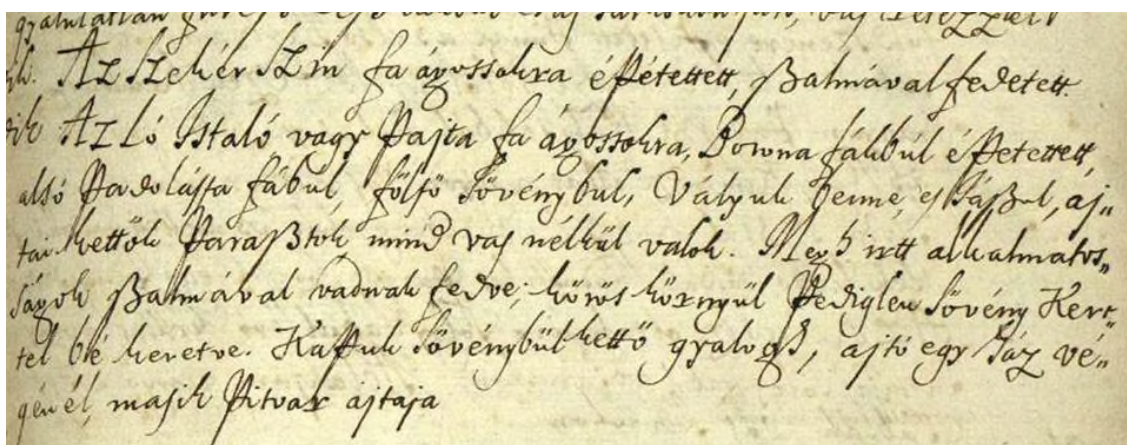 Az Szekér Szin fa ágossokra éppétettett, szalmával fedetett.
dik Az Ló Istaló vagy Pajta fa ágossokra, Borona fákbúl éppetettett,
alsó Padolássa fábul, fölső sövénybul, Válvuk benne, es Jászul, aj„
tai kettők Parasztok mind vas nélkül valok. Megh irtt alkalmatos„
ságok szalmával vadnak fedve; körös környül Pediglen sövény Kert„
tel bé keretve. Kappuk sövénybül kettő gyalogh, ajtó egy ház vé„
génél, masik Pitvar ajtaja